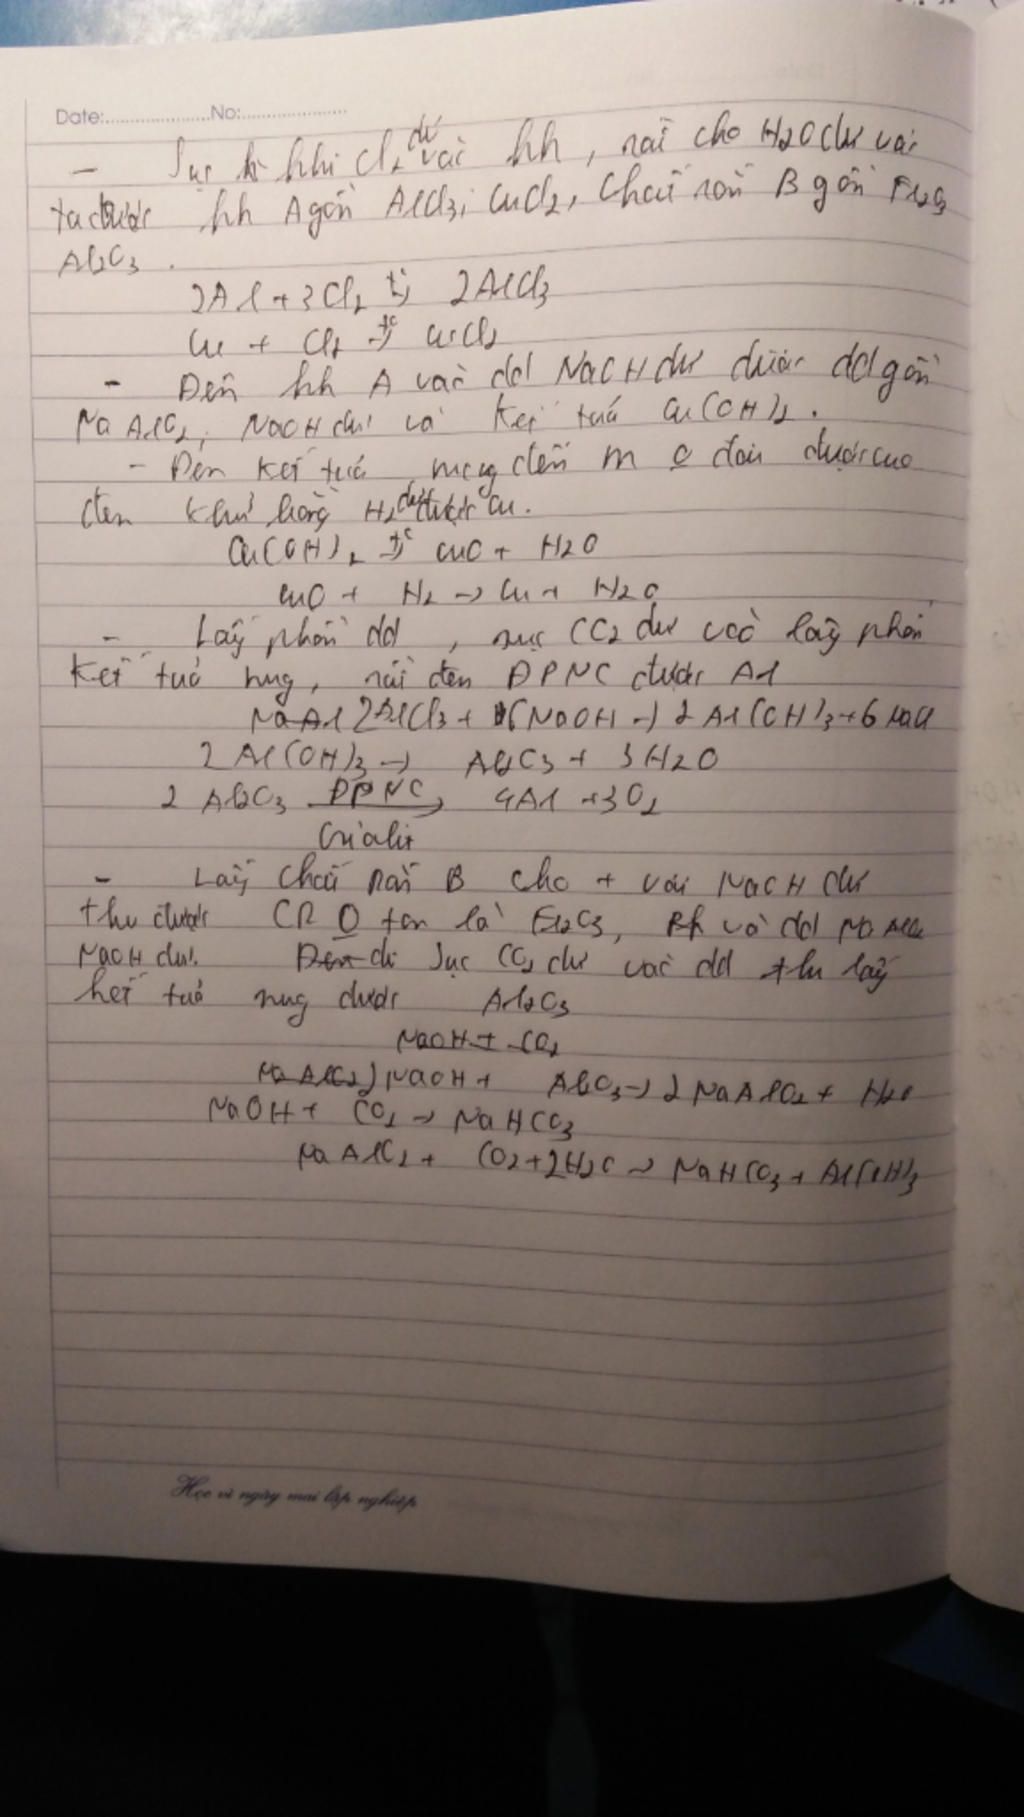 Date:....................No:....................
- Sục khí Cl2 dư vào hh, rồi cho H2O dư vào
ta được hh A gồm AlCl3, CuCl2, Chất rắn B gồm Fe2O3
Al2O3.
2Al + 3Cl2 t°→ 2AlCl3
Cu + Cl2 t°→ CuCl2
- Đến hh A vào dd NaOH dư được dd gồm
NaAlO2, NaOH dư và kết tủa Cu(OH)2.
- Đen kết tủa nung đến m đổi được CuO
đem khử bằng H2 dư được Cu.
Cu(OH)2 t°→ CuO + H2O
CuO + H2 → Cu + H2O
- Lấy phần dd, sục CO2 dư vào lấy phần
kết tủa nung, rồi đen ĐPNC được Al
2AlCl3 + 6NaOH → 2Al(OH)3 + 6NaCl
2Al(OH)3 → Al2O3 + 3H2O
2Al2O3 ĐPNC→ 4Al + 3O2
Criolit
- Lấy chất rắn B cho + với NaOH dư
thu được CR O tan là Fe2O3, và dd
NaOH dư. Sục CO2 dư vào dd thu lấy
kết tủa nung được Al2O3
NaOH + CO2
NaAlO2 2NaOH + Al2O3 → 2NaAlO2 + H2O
NaOH + CO2 → NaHCO3
NaAlO2 + CO2 + 2H2O → NaHCO3 + Al(OH)3
Học vì ngày mai lập nghiệp